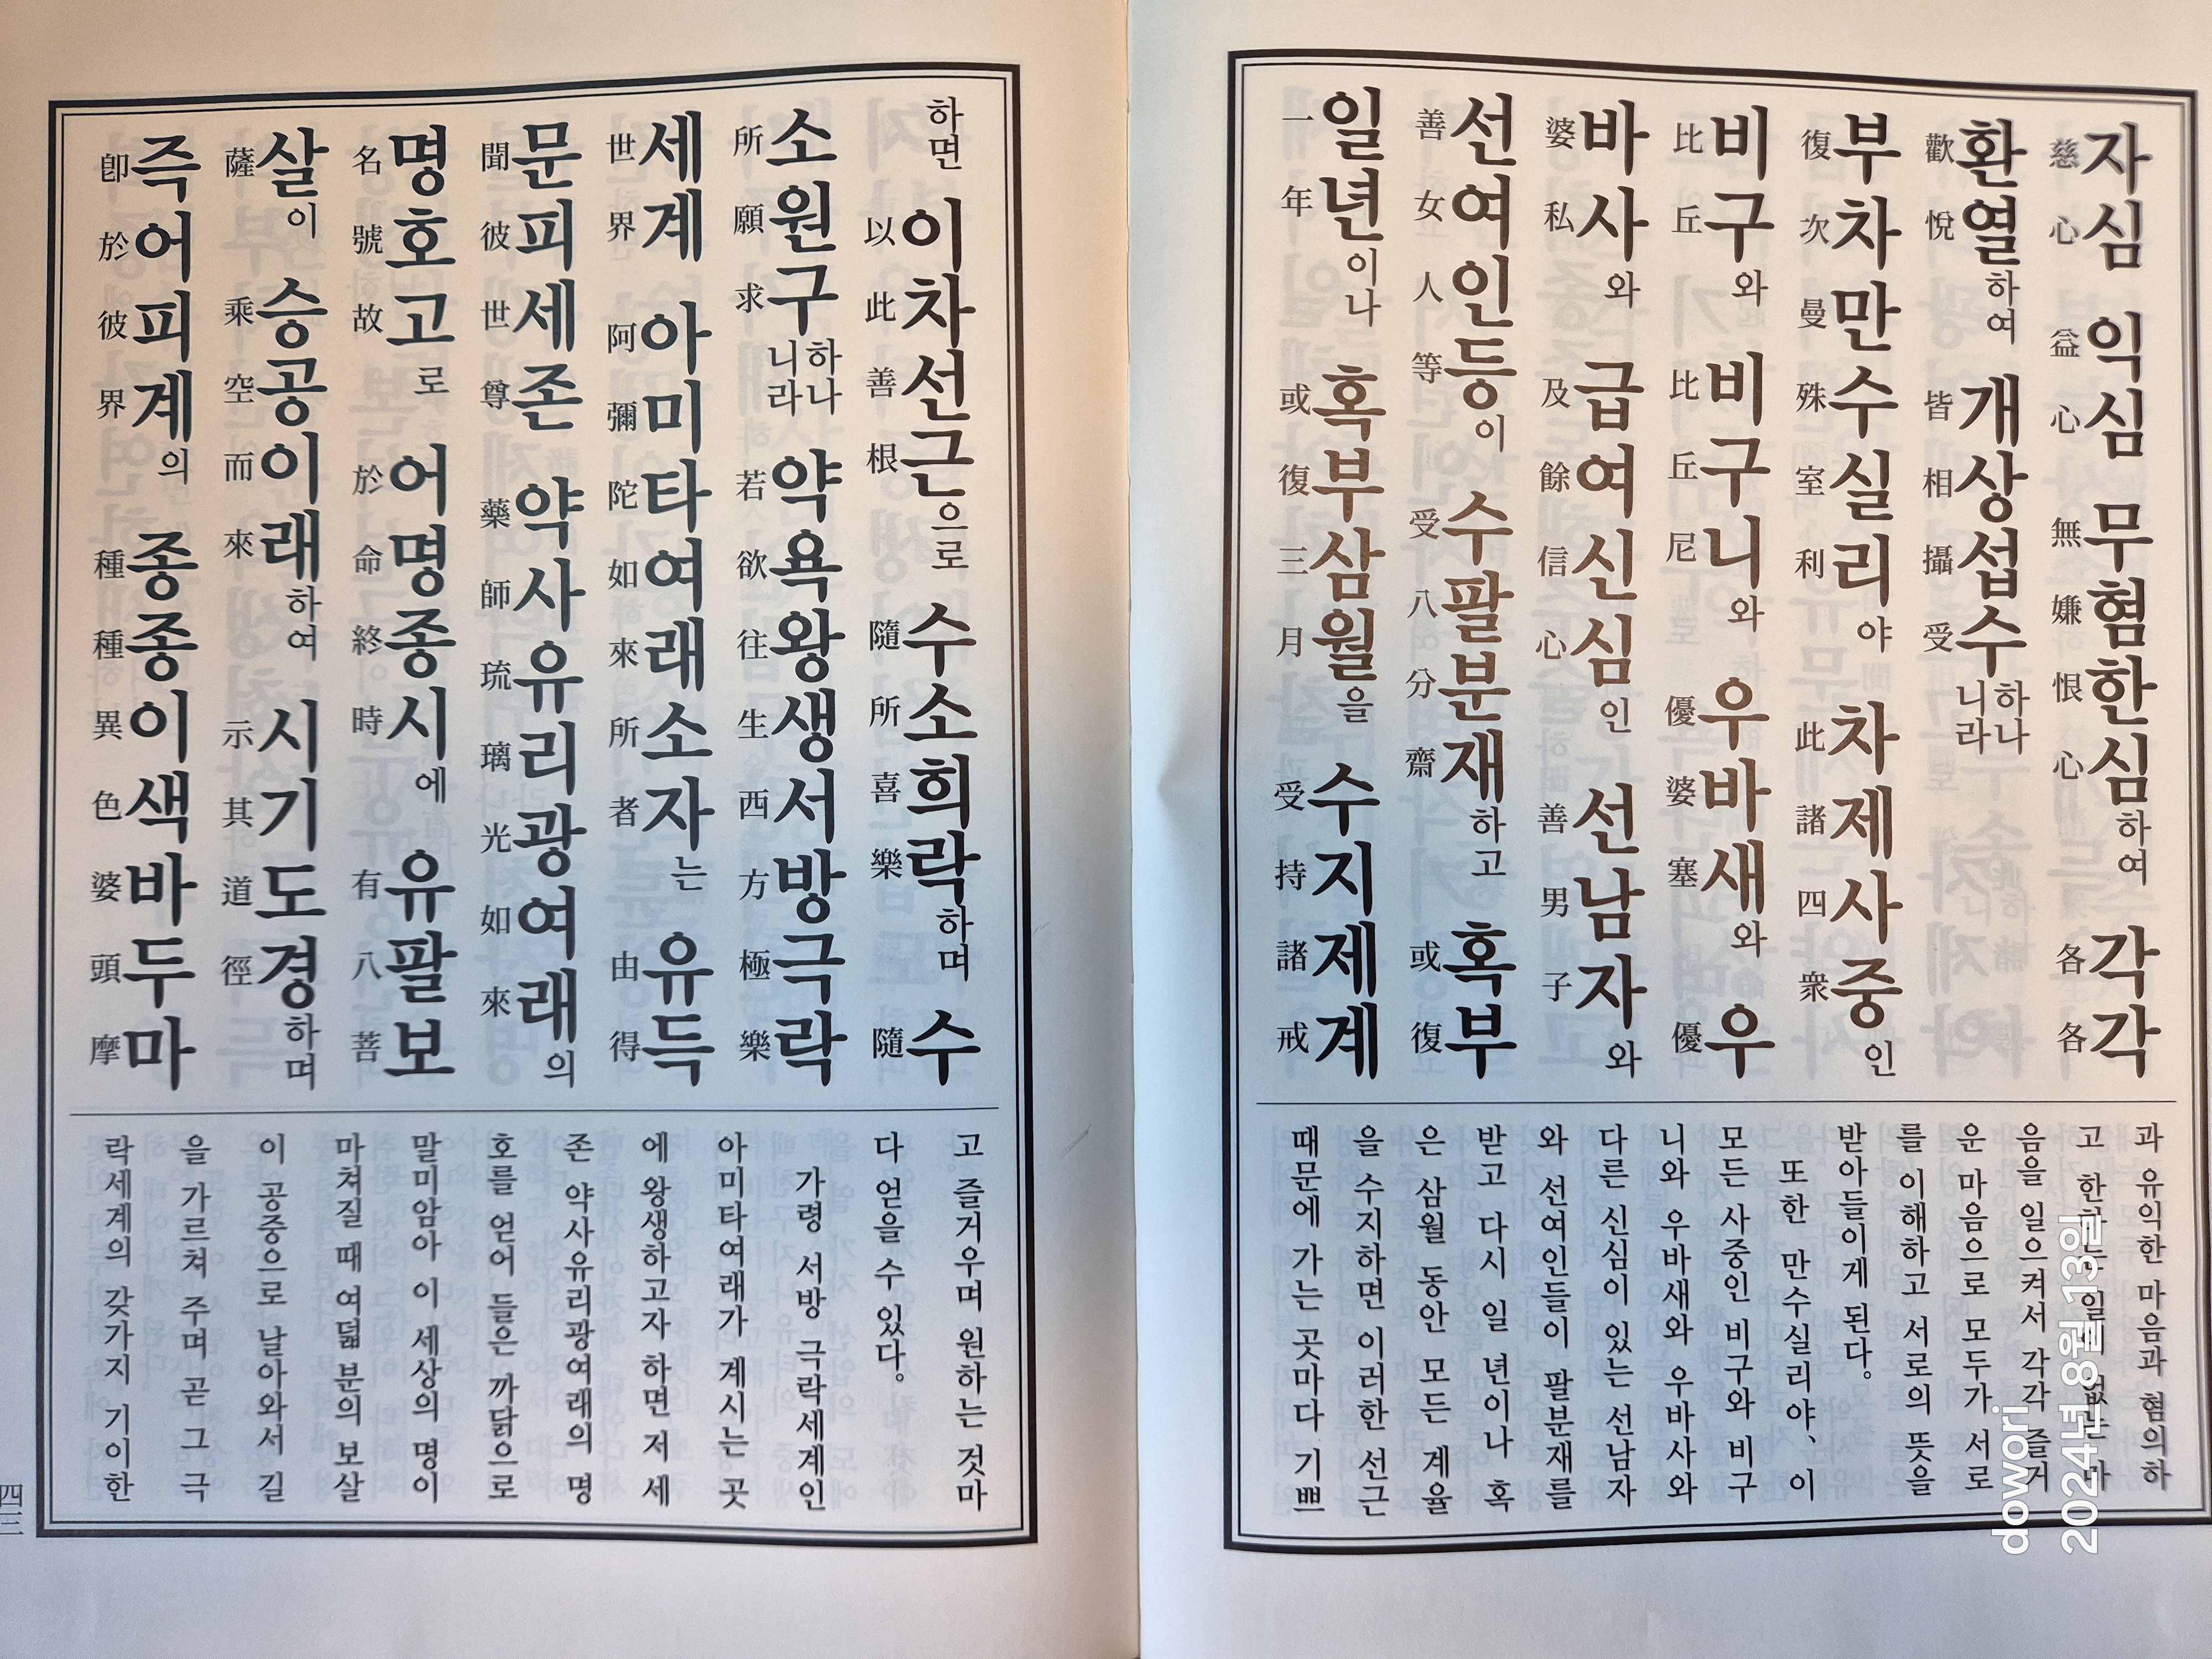 자심 익심 무혐한심하여 각각
慈心 益心 無嫌恨心 各各
환열하여 개상섭수하나니라
歡悅 皆相攝受
부차만수실리야 차제사중인
復次曼殊室利 此諸四衆
비구와 비구니와 우바새와 우
比丘 比丘尼 優婆塞 優
바사와 급여신심인 선남자와
婆私 及餘信心 善男子
선여인등이 수팔분재하고 혹부
善女人等 受八分齋 或復
일년이나 혹부삼월을 수지제계
一年 或復三月 受持諸戒
과 유익한 마음과 혐의하
고 한하는 일이 없는 마
음을 일으켜서 각각 즐거
운 마음으로 모두가 서로
를 이해하고 서로의 뜻을
받아들이게 된다。
또한 만수실리야、이
모든 사중인 비구와 비구
니와 우바새와 우바사와
다른 신심이 있는 선남자
와 선여인들이 팔분재를
받고 다시 일 년이나 혹
은 삼월 동안 모든 계율
을 수지하면 이러한 선근
때문에 가는 곳마다 기쁘
하면 이차선근으로 수소희락하며 수
以此善根 隨所喜樂 隨
소원구하나니라 약욕왕생서방극락
所願求 若欲往生西方極樂
세계 아미타여래소자는 유득
世界 阿彌陀如來所者 由得
문피세존 약사유리광여래의
聞彼世尊 藥師琉璃光如來
명호고로 어명종시에 유팔보
名號故 於命終時 有八菩
살이 승공이래하여 시기도경하며
薩 乘空而來 示其道徑
즉어피계의 종종이색바두마
卽於彼界 種種異色婆頭摩
고 즐거우며 원하는 것마
다 얻을 수 있다。
가령 서방 극락세계인
아미타여래가 계시는 곳
에 왕생하고자 하면 저 세
존 약사유리광여래의 명
호를 얻어 들은 까닭으로
말미암아 이 세상의 명이
마쳐질 때 여덟 분의 보살
이 공중으로 날아와서 길
을 가르쳐 주며 곧 그 극
락세계의 갖가지 기이한
四三
dowori
2024년 8월 13일